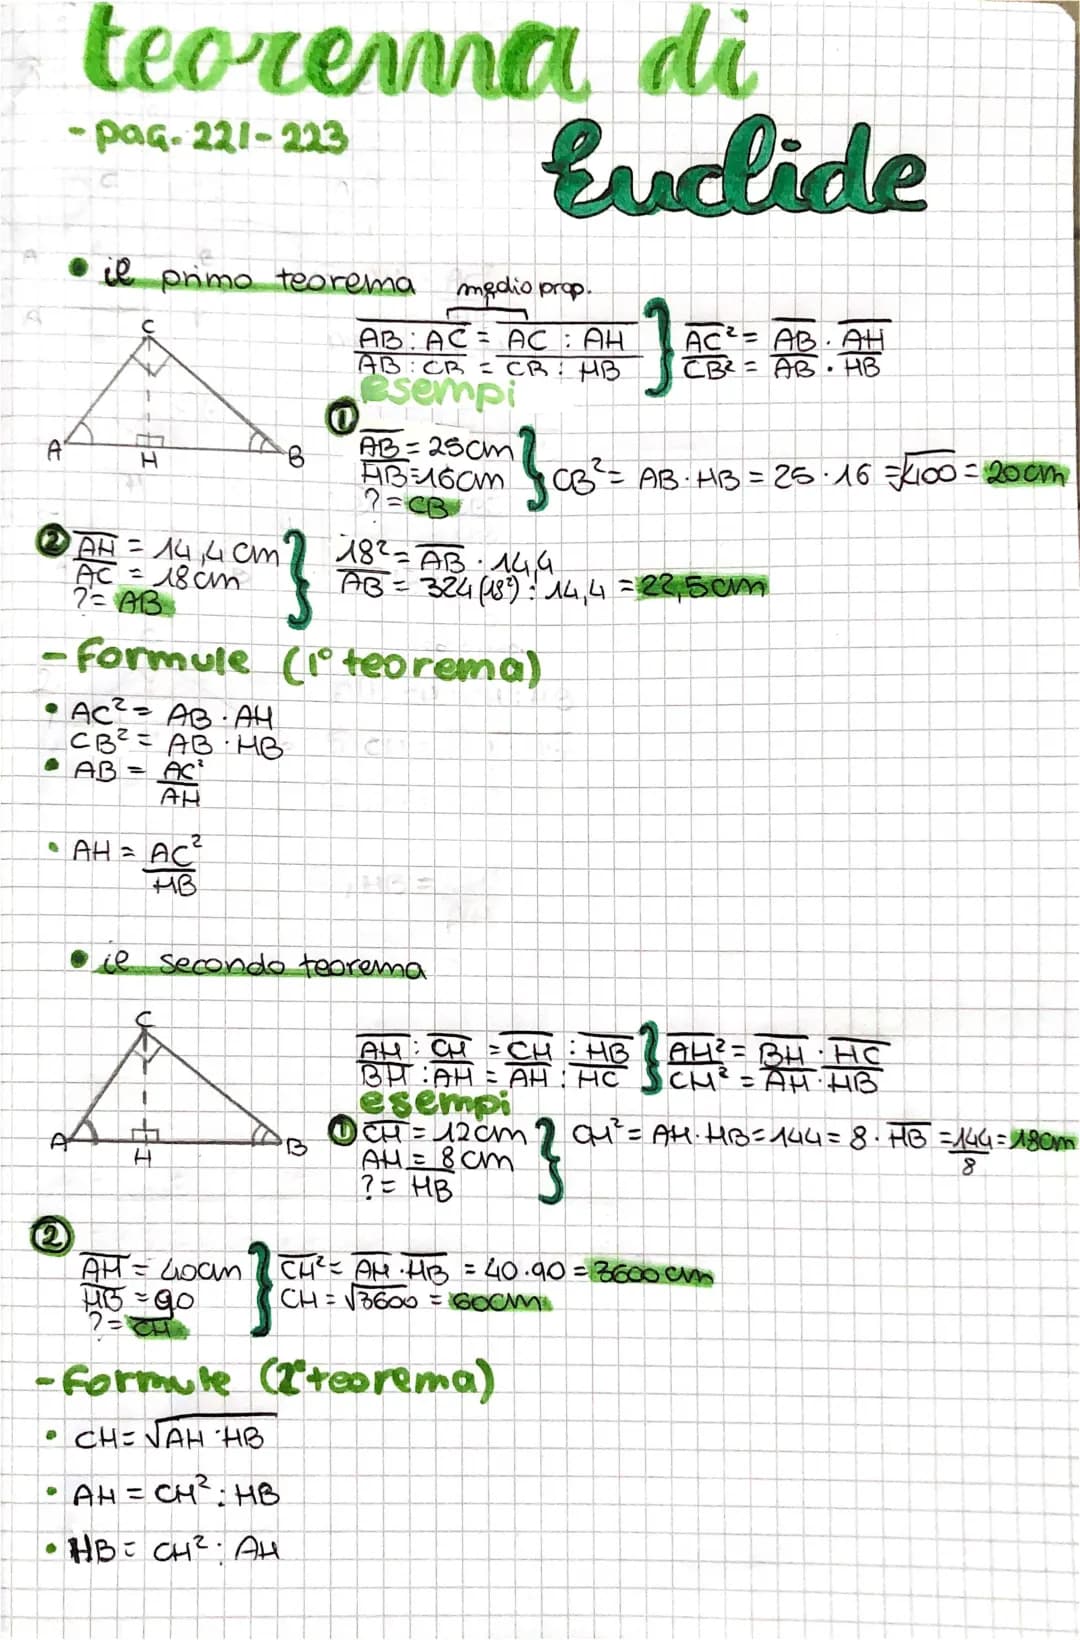 teorema di
Euclide
- pag. 221-223
• il primo teorema
medio prop.
C
A
H
B
AB : AC = AC : AH
AB : CB = CB : HB
AC² = AB · AH
CB² = AB · HB
esempi
① AB = 25cm
HB = 16cm
? = CB
CB² = AB · HB = 25 · 16 = √400 = 20cm
② AH = 14,4 cm
AC = 18cm
? = AB
18² = AB · 14,4
AB = 324 (18²) : 14,4 = 22,5cm
- formule (1° teorema)
• AC² = AB · AH
CB² = AB · HB
• AB = AC²
AH
• AH = AC²
HB
• il secondo teorema
C
A
H
B
AH : CH = CH : HB
BH : AH = AH : HC
AH² = BH · HC
CH² = AH · HB
esempi
① CH = 12cm
AH = 8cm
? = HB
CH² = AH · HB = 144 = 8 · HB = 144 = 18cm
8
②
AH = 40cm
HB = 90
? = CH
CH² = AH · HB = 40 · 90 = 3600cm
CH = √3600 = 60cm
- formule (2° teorema)
• CH = √AH · HB
• AH = CH² : HB
• HB = CH² : AH